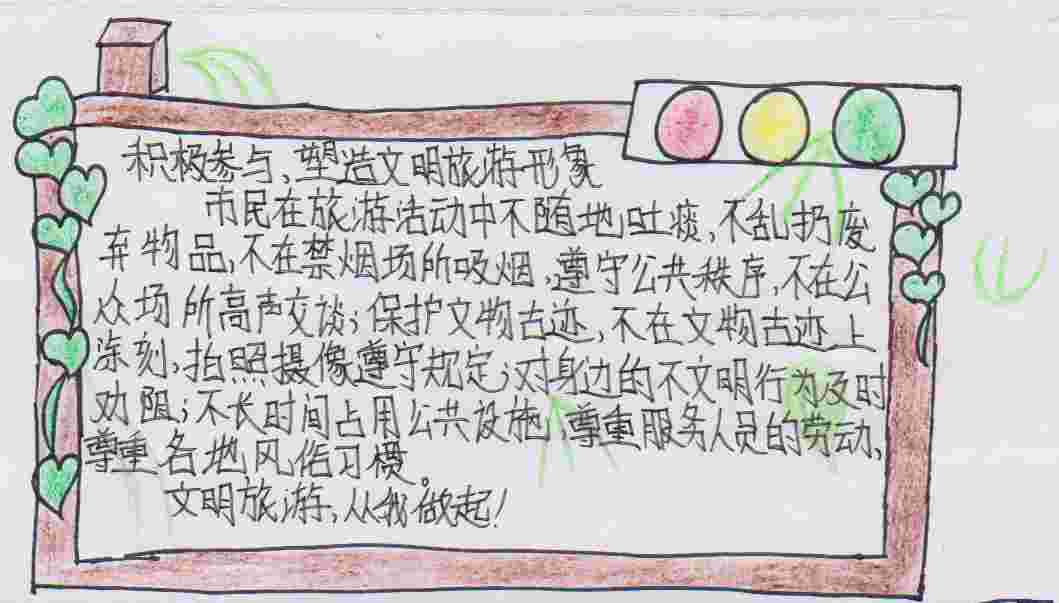 积极参与、塑造文明旅游形象
市民在旅游活动中不随地吐痰,不乱扔废
弃物品,不在禁烟场所吸烟,遵守公共秩序,不在公
众场所高声交谈;保护文物古迹,不在文物古迹上
涂刻,拍照摄像遵守规定;对身边的不文明行为及时
劝阻;不长时间占用公共设施,尊重服务人员的劳动,
尊重各地风俗习惯。
文明旅游,从我做起!